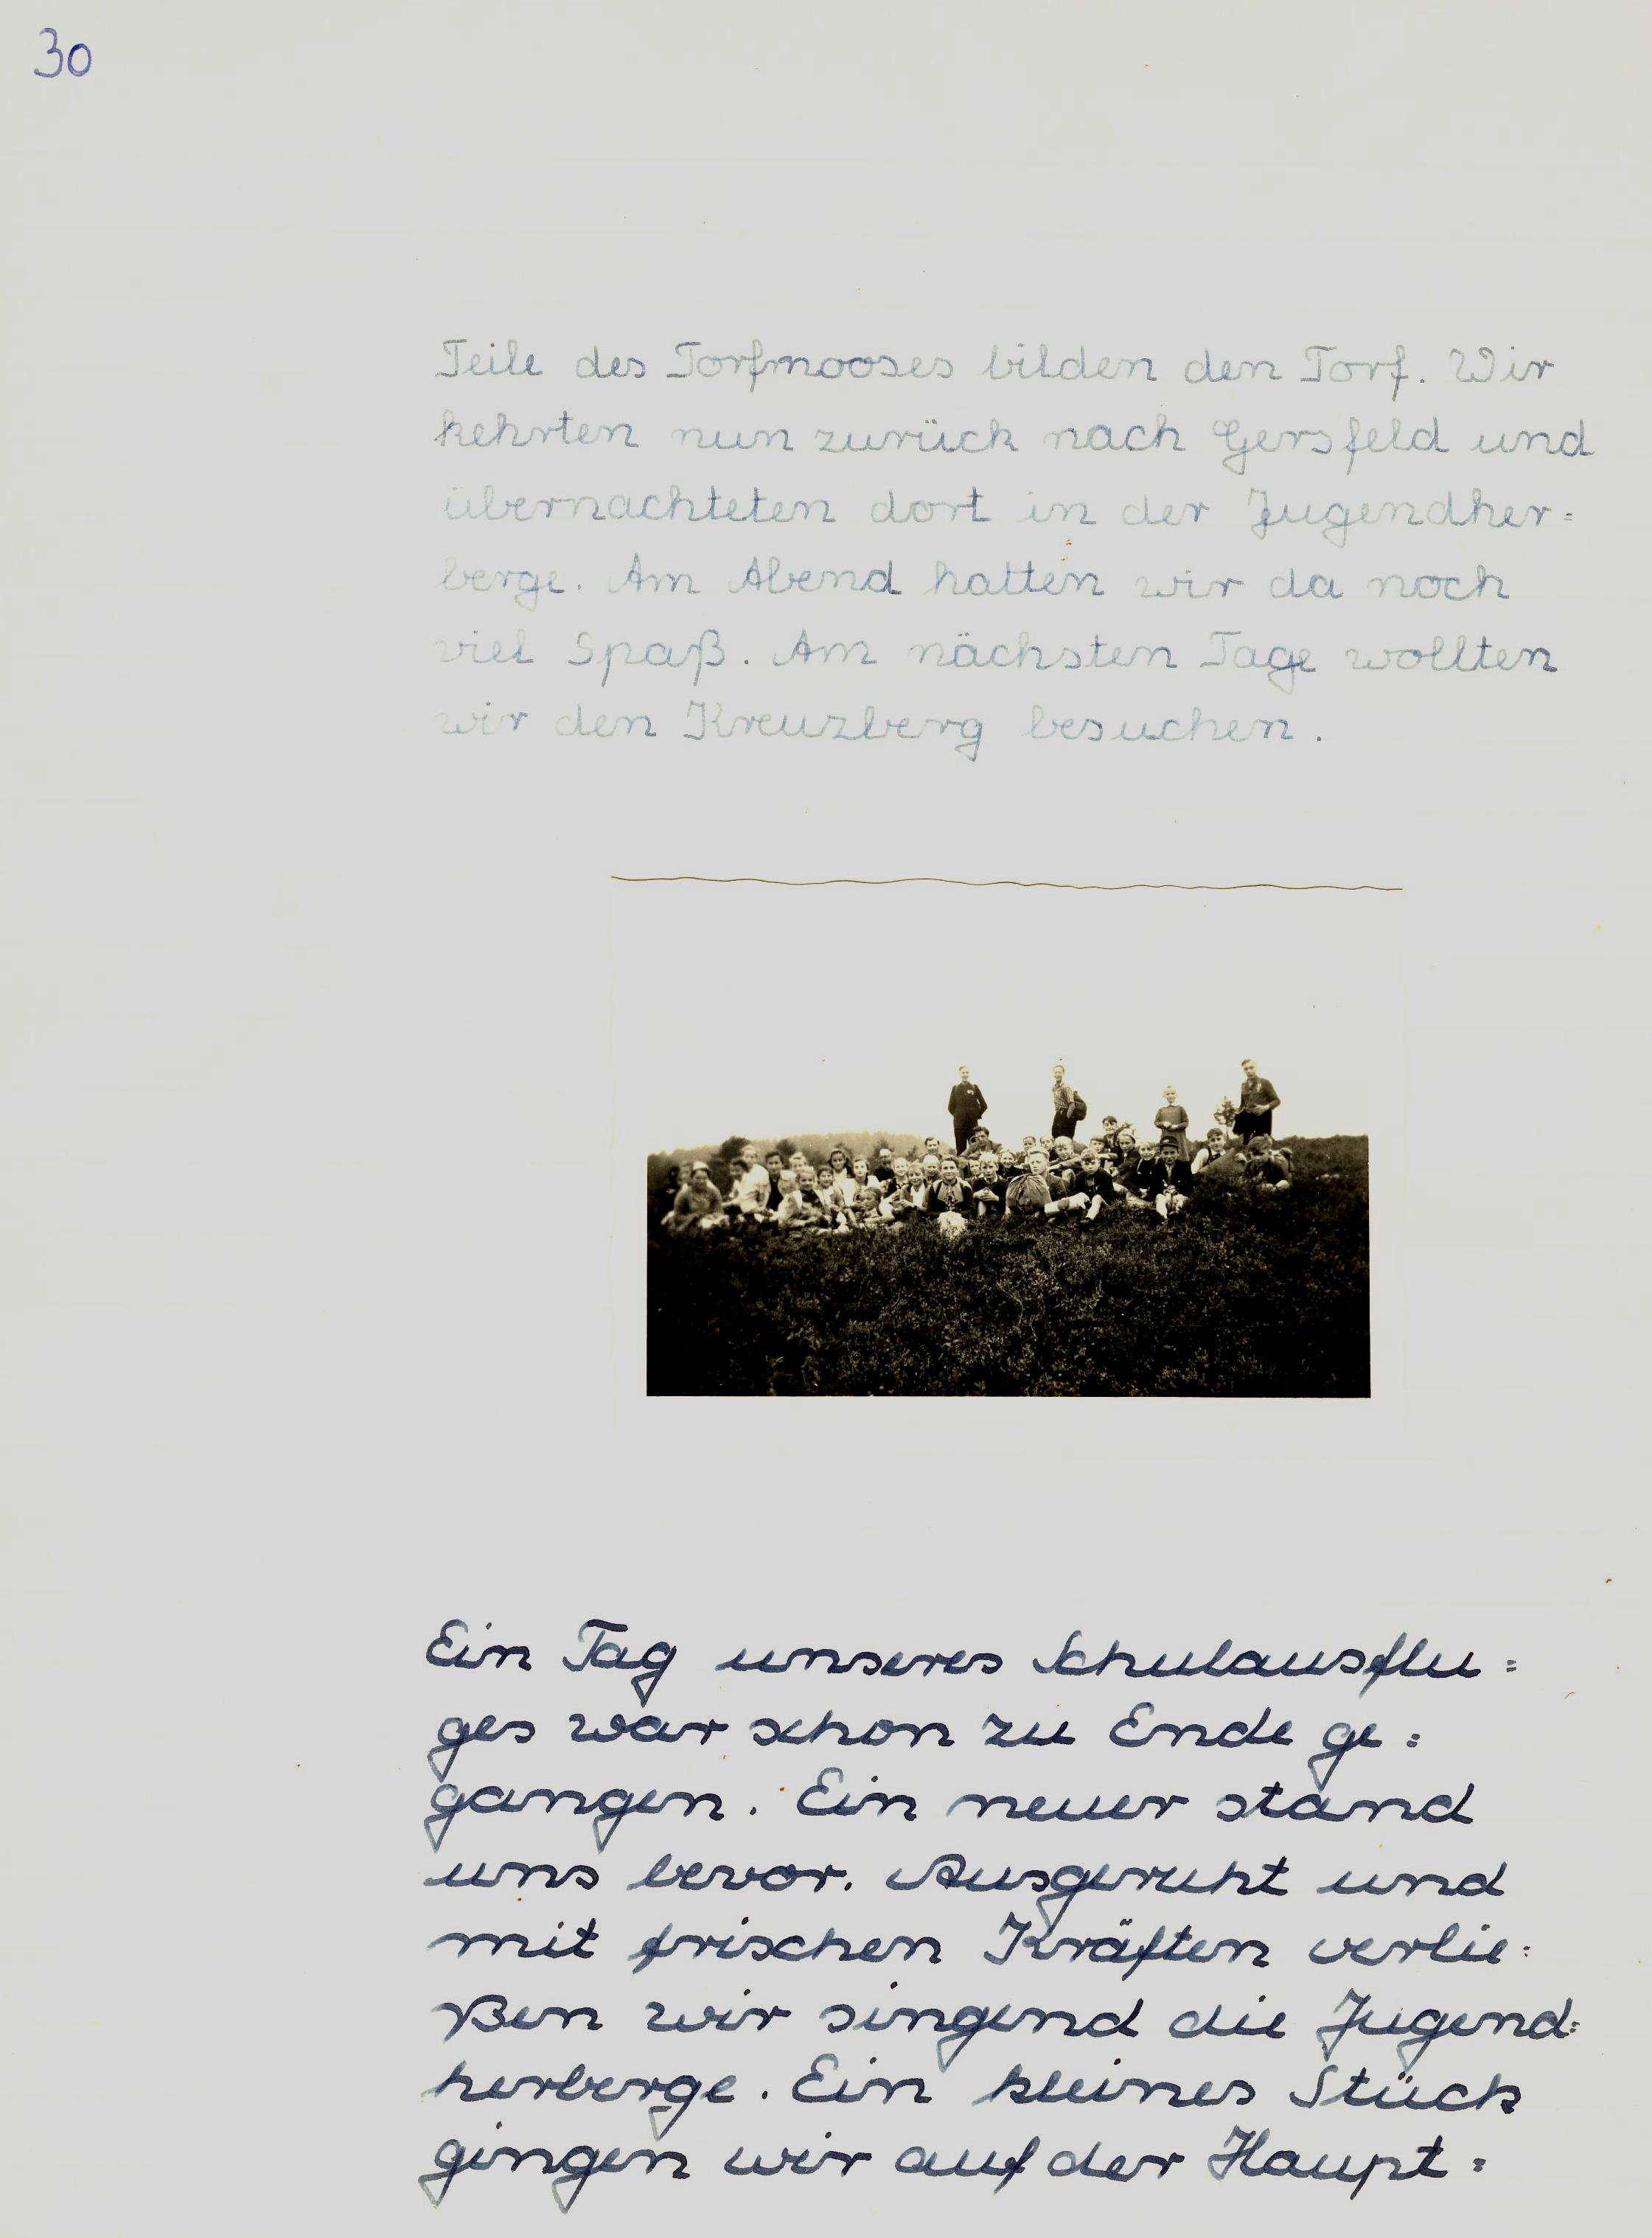 30
Teile des Torfmooses bilden den Torf. Wir
kehrten nun zurück nach Gersfeld und
übernachteten dort in der Jugendher=
berge. Am Abend hatten wir da noch
viel Spaß. Am nächsten Tage wollten
wir den Kreuzberg besuchen.
Ein Tag unseres Schulausflu=
ges war schon zu Ende ge=
gangen. Ein neuer stand
uns bevor. Ausgeruht und
mit frischen Kräften verlie=
ßen wir singend die Jugend=
herberge. Ein kleines Stück
gingen wir auf der Haupt=